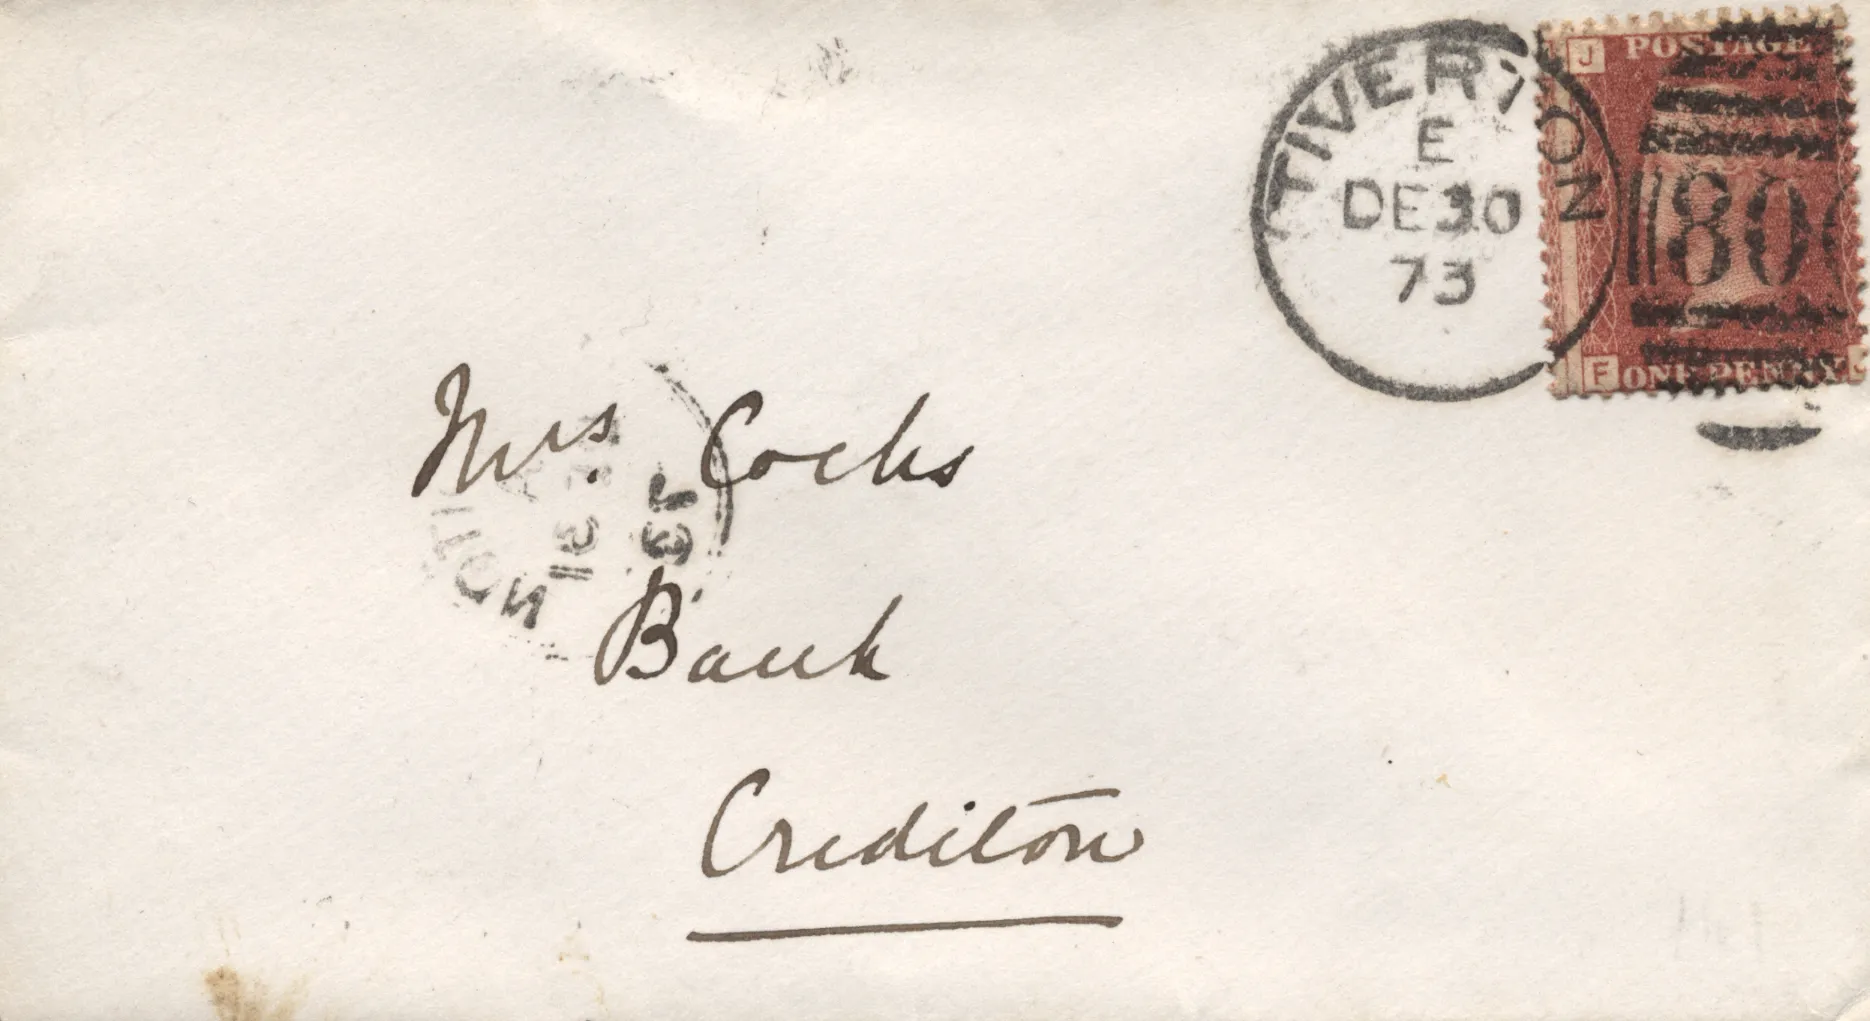 TIVERTON
E
DE 30
73
J POSTAGE
80
F ONE PENNY
Mrs. Cocks
Bank
Crediton